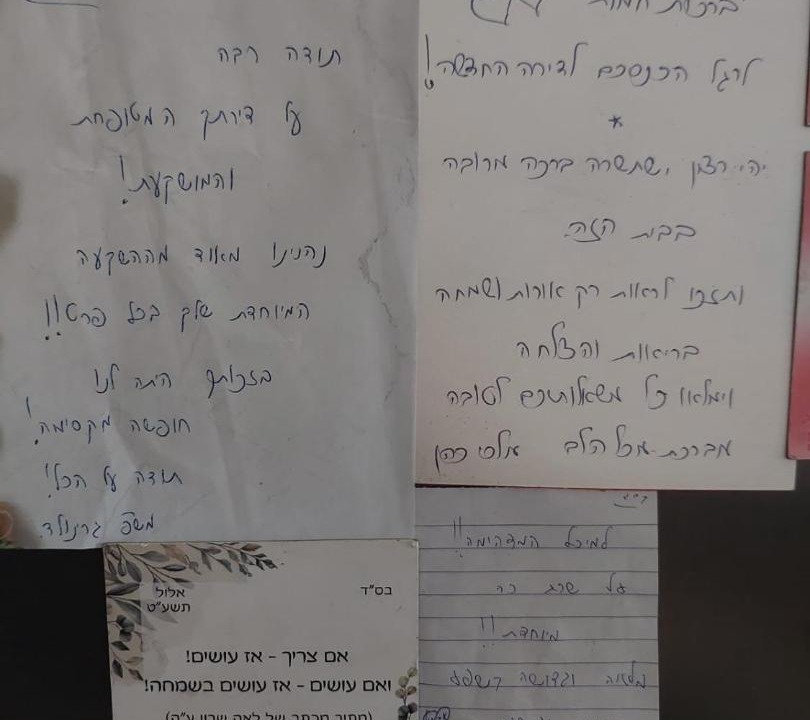 תודה רבה
על דירתך המטופחת
והמושקעת!
נהנינו מאוד מההשקעה
המיוחדת שלך בכל פרט!!
בזכותך היתה לנו
חופשה מקסימה!
תודה על הכל!
משפ'
ברכות חמות
לרגל הכנסכם לדירה החדשה!
*
יהי רצון, שתשרה ברכה מרובה
בבית הזה.
ותזכו לראות רק אורות ושמחה
בריאות והצלחה
וימלאו כל משאלותיכם לטובה
מברכת מכל הלב אלטי כהן
למיכל המדהימה!!
על
מיוחדת!!
בס"ד
אלול
תשע"ט
אם צריך - אז עושים!
ואם עושים - אז עושים בשמחה!
(מתוך מכתב של לאה שרון ע"ה)